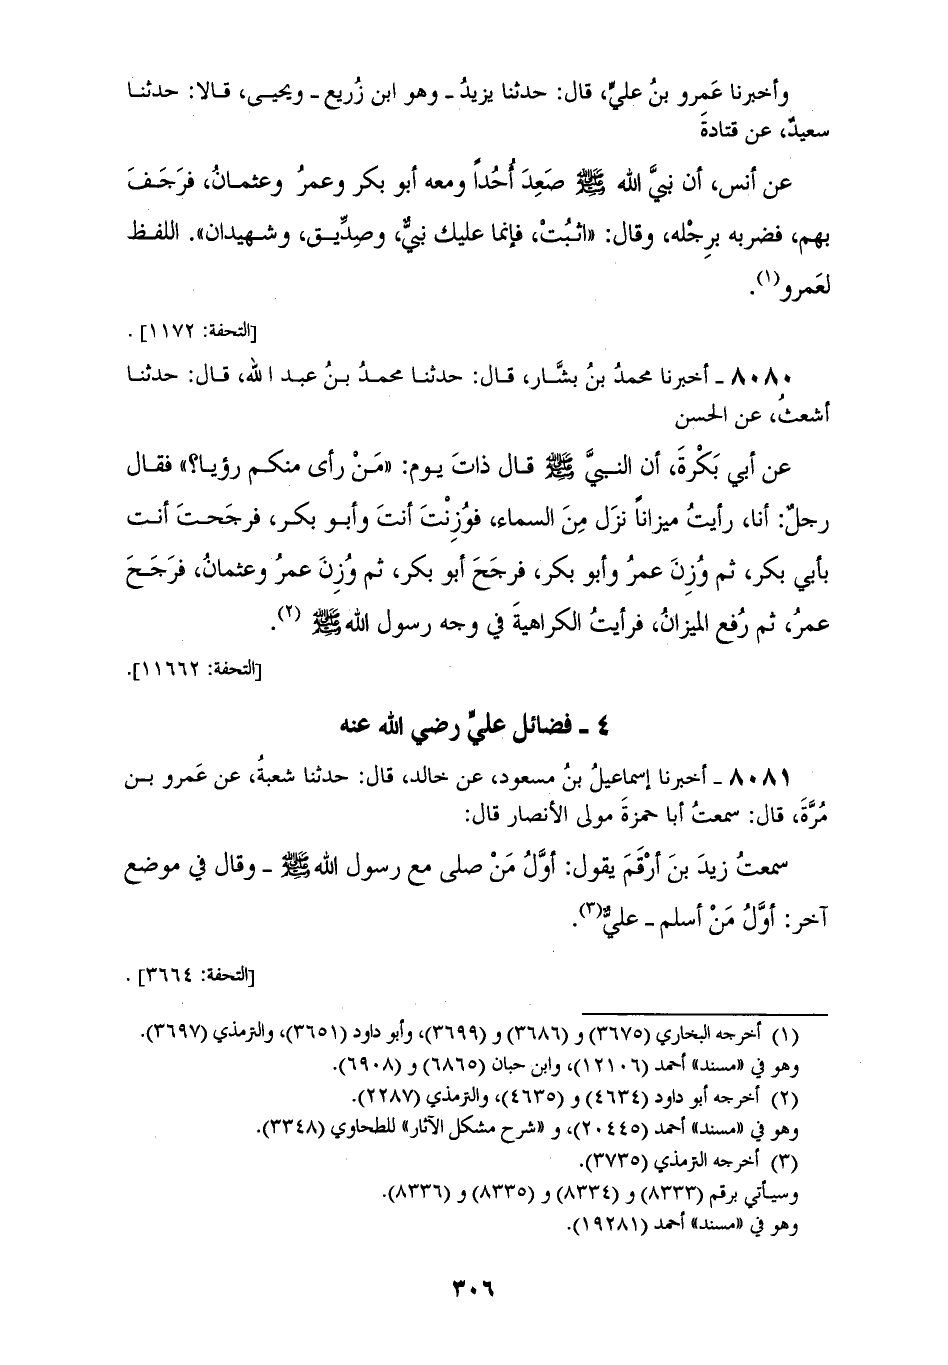 وأخبرنا عَمرو بنُ عليٍّ، قال: حدثنا يزيدُ ـ وهو ابن زُريع ـ ويحيـى، قـالا: حدثنـا
سعيدٌ، عن قتادةَ
عن أنس، أن نبيَّ الله ﷺ صَعِدَ أُحُداً ومعه أبو بكر وعمرُ وعثمـانُ، فرَجَـفَ
بهم، فضربه برِجْله، وقال: «اثبُتْ، فإنما عليك نبيٌّ، وصِدِّيـق، وشـهيدان». اللفـظ
لعَمرو(١).
[التحفة: ١١٧٢] .
٨٠٨٠ ـ أخبرنا محمدُ بنُ بشَّار، قـال: حدثنـا محمـدُ بـنُ عبـد الله، قـال: حدثنـا
أشعثُ، عن الحسن
عن أبي بَكْرةَ، أن النـبيَّ ﷺ قـال ذاتَ يـوم: «مَـنْ رأى منكـم رؤيـا؟» فقـال
رجلٌ: أنا، رأيتُ ميزاناً نزَل مِنَ السماء، فوُزِنْتَ أنتَ وأبـو بكـر، فرجَحـتَ أنـت
بأبي بكر، ثم وُزِنَ عمرُ وأبو بكر، فرجَحَ أبو بكر، ثم وُزِنَ عمرُ وعثمانُ، فرَجَـحَ
عمرُ، ثم رُفع الميزانُ، فرأيتُ الكراهيةَ في وجه رسول الله ﷺ (٢).
[التحفة: ١١٦٦٢].
٤ ـ فضائل عليٍّ رضي الله عنه
٨٠٨١ ـ أخبرنا إسماعيلُ بنُ مسعود، عن خالد، قال: حدثنا شعبةُ، عن عَمرو بـن
مُرَّةَ، قال: سمعتُ أبا حمزةَ مولى الأنصار قال:
سمعتُ زيدَ بنَ أرْقَمَ يقول: أوَّلُ مَنْ صلى مع رسول الله ﷺ ـ وقال في موضع
آخر: أوَّلُ مَنْ أسلم ـ عليٌّ(٣).
[التحفة: ٣٦٦٤] .
(١) أخرجه البخاري (٣٦٧٥) و (٣٦٨٦) و (٣٦٩٩)، وأبو داود (٣٦٥١)، والترمذي (٣٦٩٧).
وهو في «مسند» أحمد (١٢١٠٦)، وابن حبان (٦٨٦٥) و (٦٩٠٨).
(٢) أخرجه أبو داود (٤٦٣٤) و (٤٦٣٥)، والترمذي (٢٢٨٧).
وهو في «مسند» أحمد (٢٠٤٤٥)، و «شرح مشكل الآثار» للطحاوي (٣٣٤٨).
(٣) أخرجه الترمذي (٣٧٣٥).
وسيأتي برقم (٨٣٣٣) و (٨٣٣٤) و (٨٣٣٥) و (٨٣٣٦).
وهو في «مسند» أحمد (١٩٢٨١).
٣٠٦